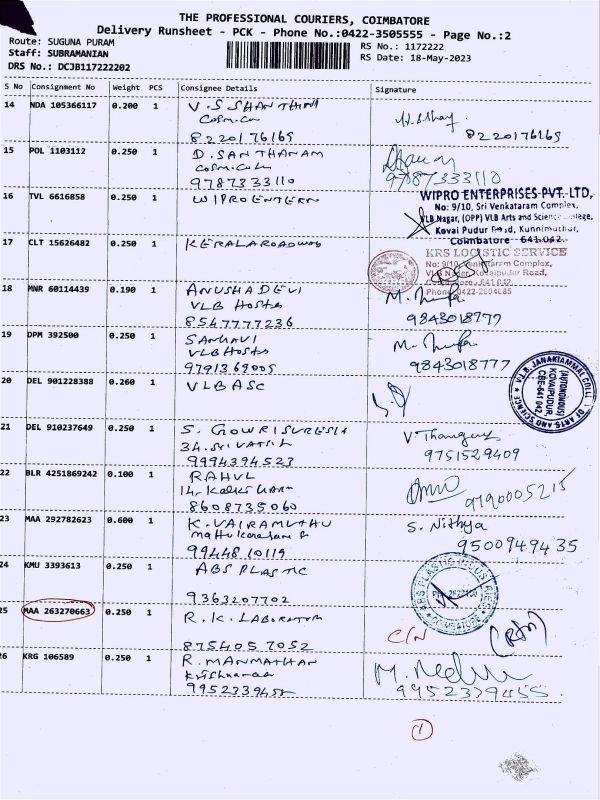 THE PROFESSIONAL COURIERS, COIMBATORE
Delivery Runsheet - PCK - Phone No.:0422-3505555 - Page No.:2
Route: SUGUNA PURAM
RS No.: 1172222
Staff: SUBRAMANIAN
RS Date: 18-May-2023
DRS No.: DCJB117222202
S No Consignment No Weight PCS Consignee Details Signature
14 NDA 105366117 0.200 1 V.S SHANTHINI
8220176165 8220176165
15 POL 1103112 0.250 1 D. SANTHANAM
9787333110 9787333110
16 TVL 6616858 0.250 1 WIPRO ENTERN
WIPRO ENTERPRISES PVT. LTD,
No: 9/10, Sri Venkataram Complex,
VLB Nagar, (OPP) VLB Arts and Science College,
Kovai Pudur Road, Kunnimuthur,
Coimbatore - 641 042.
17 CLT 15626482 0.250 1 KERALA ROADWAYS
KRS LOGISTIC SERVICE
No: 9/10, Venkataram Complex,
VLB Nagar, Kovaipudur Road,
Phone: 0422-2604685
18 MNR 60114439 0.190 1 ANUSHA DEVI
VLB Hostes
8547777236 9843018777
19 DPM 392500 0.250 1 SANGAVI
VLB Hostes
9791369005 9843018777
20 DEL 901228388 0.260 1 VLB ASC
V.L.B. JANAKIAMMAL COLLEGE OF ARTS AND SCIENCE
(AUTONOMOUS)
KOVAIPUDUR,
CBE-641 042
21 DEL 910237649 0.250 1 S. GOWRI SURESH
34. SRIVATSA
9994394523 9751529409
22 BLR 4251869242 0.100 1 RAHUL
8608735060 9190005215
23 MAA 292782623 0.600 1 K. VAIRAMUTHU S. Nithya
9944810119 9500949435
24 KMU 3393613 0.250 1 ABS PLASTIC
9363207702
ABS PLASTIC INDUSTRIES
COIMBATORE
25 MAA 263270663 0.250 1 R.K. LABORATORY C/N
8754057052
26 KRG 106589 0.250 1 R. MANMATHAN
9952339455 9952339455
1